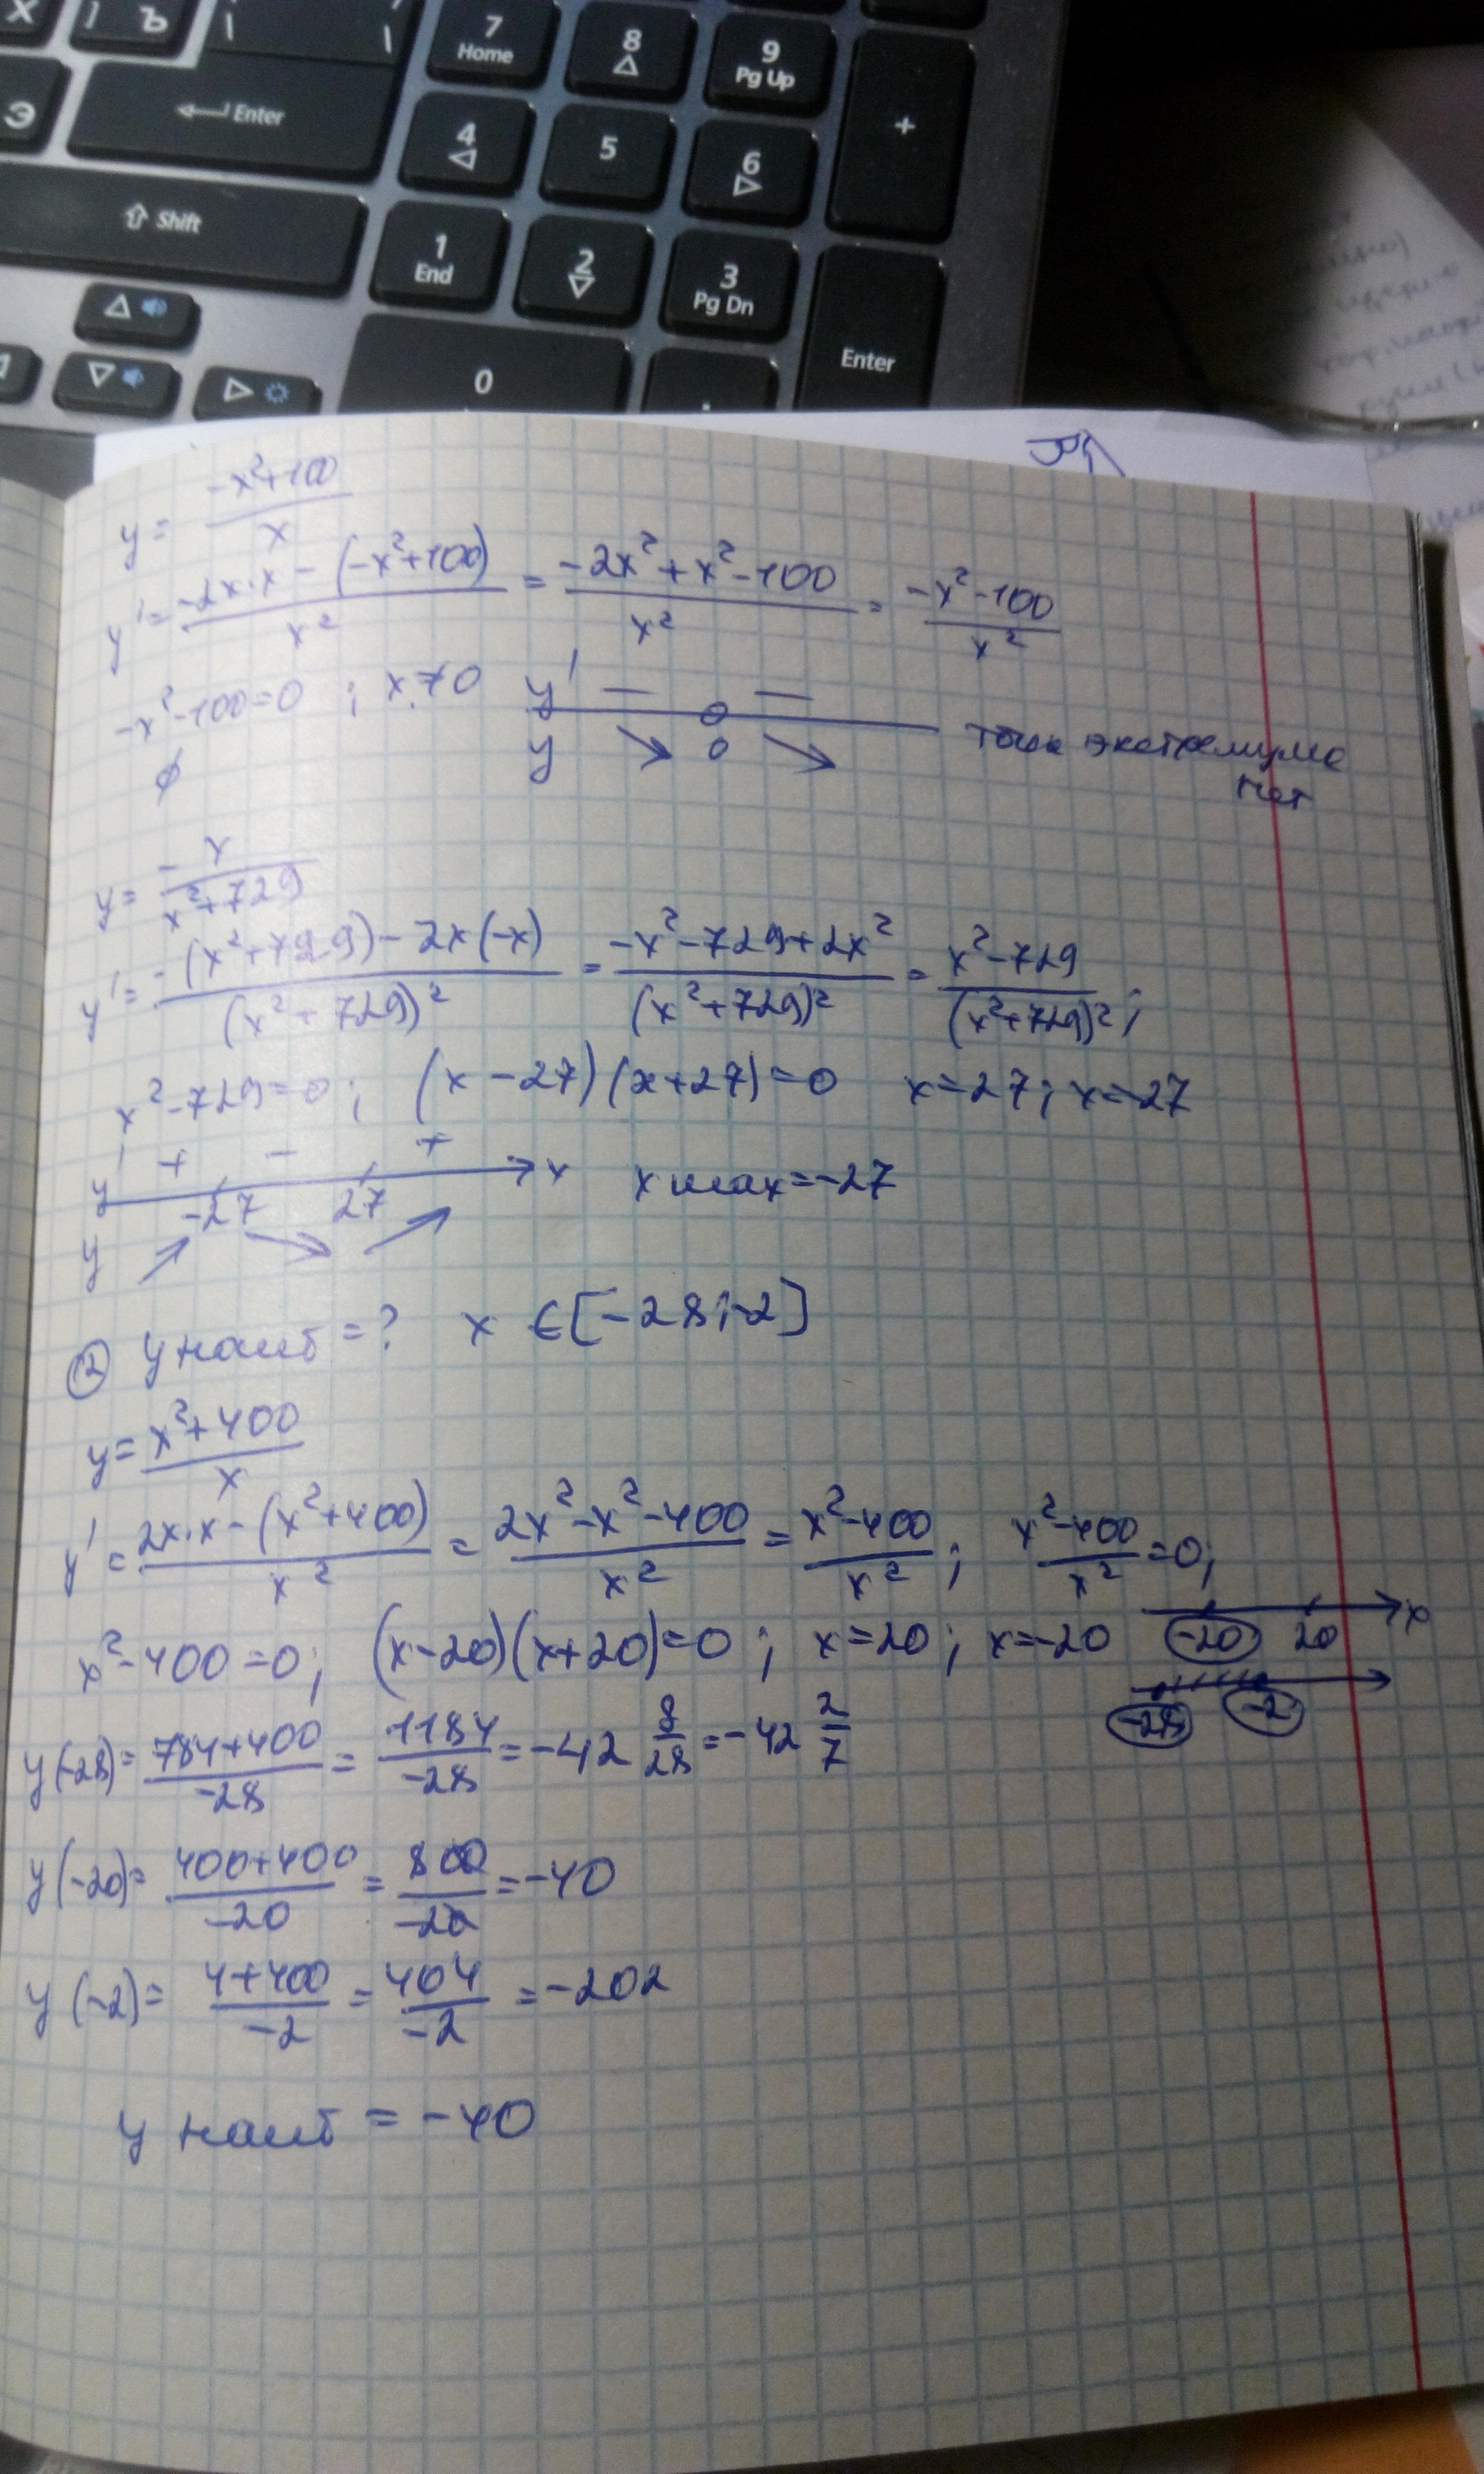 х Ъ 7 Home 8 9 Pg Up +
Э Enter 4 5 6
Shift 1 End 2 3 Pg Dn Enter
0 .
y = (-x²+100)/x
y' = (-2x·x - (-x²+100))/x² = (-2x²+x²-100)/x² = (-x²-100)/x²
-x²-100=0 ; x≠0 y' — — 
∅ y ↘ 0 ↘ точек экстремума
нет
y = -x/(x²+729)
y' = (-(x²+729) - 2x(-x))/(x²+729)² = (-x²-729+2x²)/(x²+729)² = (x²-729)/(x²+729)² ;
x²-729=0 ; (x-27)(x+27)=0 x=27; x=-27
y' + - + x x max=-27
-27 27
y ↗ ↘ ↗
② y наиб =? x ∈[-28;-2]
y = (x²+400)/x
y' = (2x·x - (x²+400))/x² = (2x²-x²-400)/x² = (x²-400)/x² ; (x²-400)/x² =0;
x²-400=0; (x-20)(x+20)=0 ; x=20; x=-20 -20 20 x
-28 -2
y(-28)= (784+400)/-28 = 1184/-28 = -42 8/28 = -42 2/7
y(-20)= (400+400)/-20 = 800/-20 = -40
y(-2)= (4+400)/-2 = 404/-2 = -202
y наиб = -40